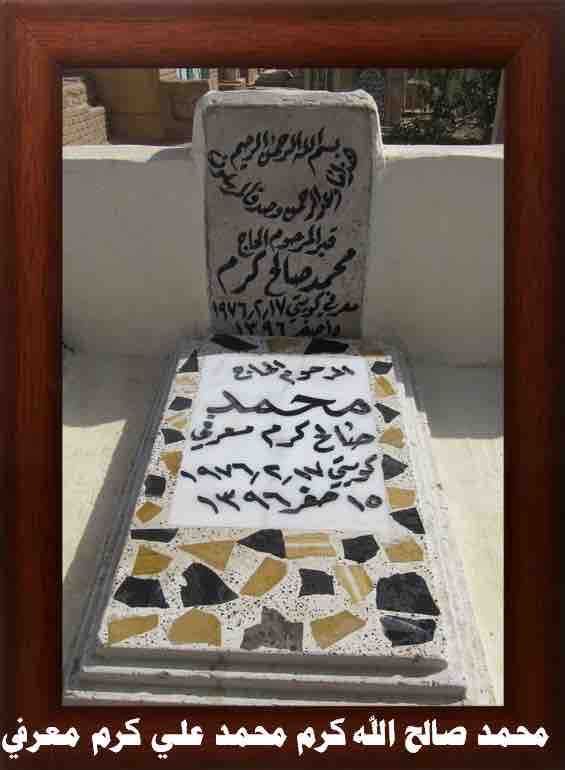 بسم الله الرحمن الرحيم
هذا ما وعد الرحمن وصدق المرسلون
قبر المرحوم الحاج
محمد صالح كرم
معرفي كويتي ١٧ر٢ر١٩٧٦
١٥ صفر ١٣٩٦
المرحوم الحاج
محمد
صالح كرم معرفي
كويتي ١٧ر٢ر١٩٧٦
١٥ صفر ١٣٩٦
محمد صالح الله كرم محمد علي كرم معرفي